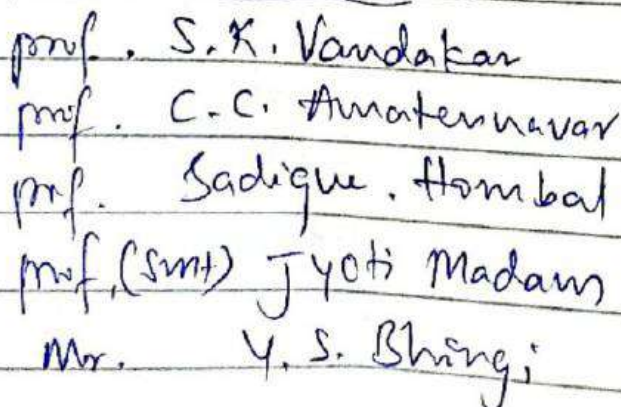 prof. S.K. Vandakar
prof. C.C. Amaternavar
prf. Sadique. Hombal
prof, (Smt) Jyoti Madam
Mr. Y.S. Bhingi